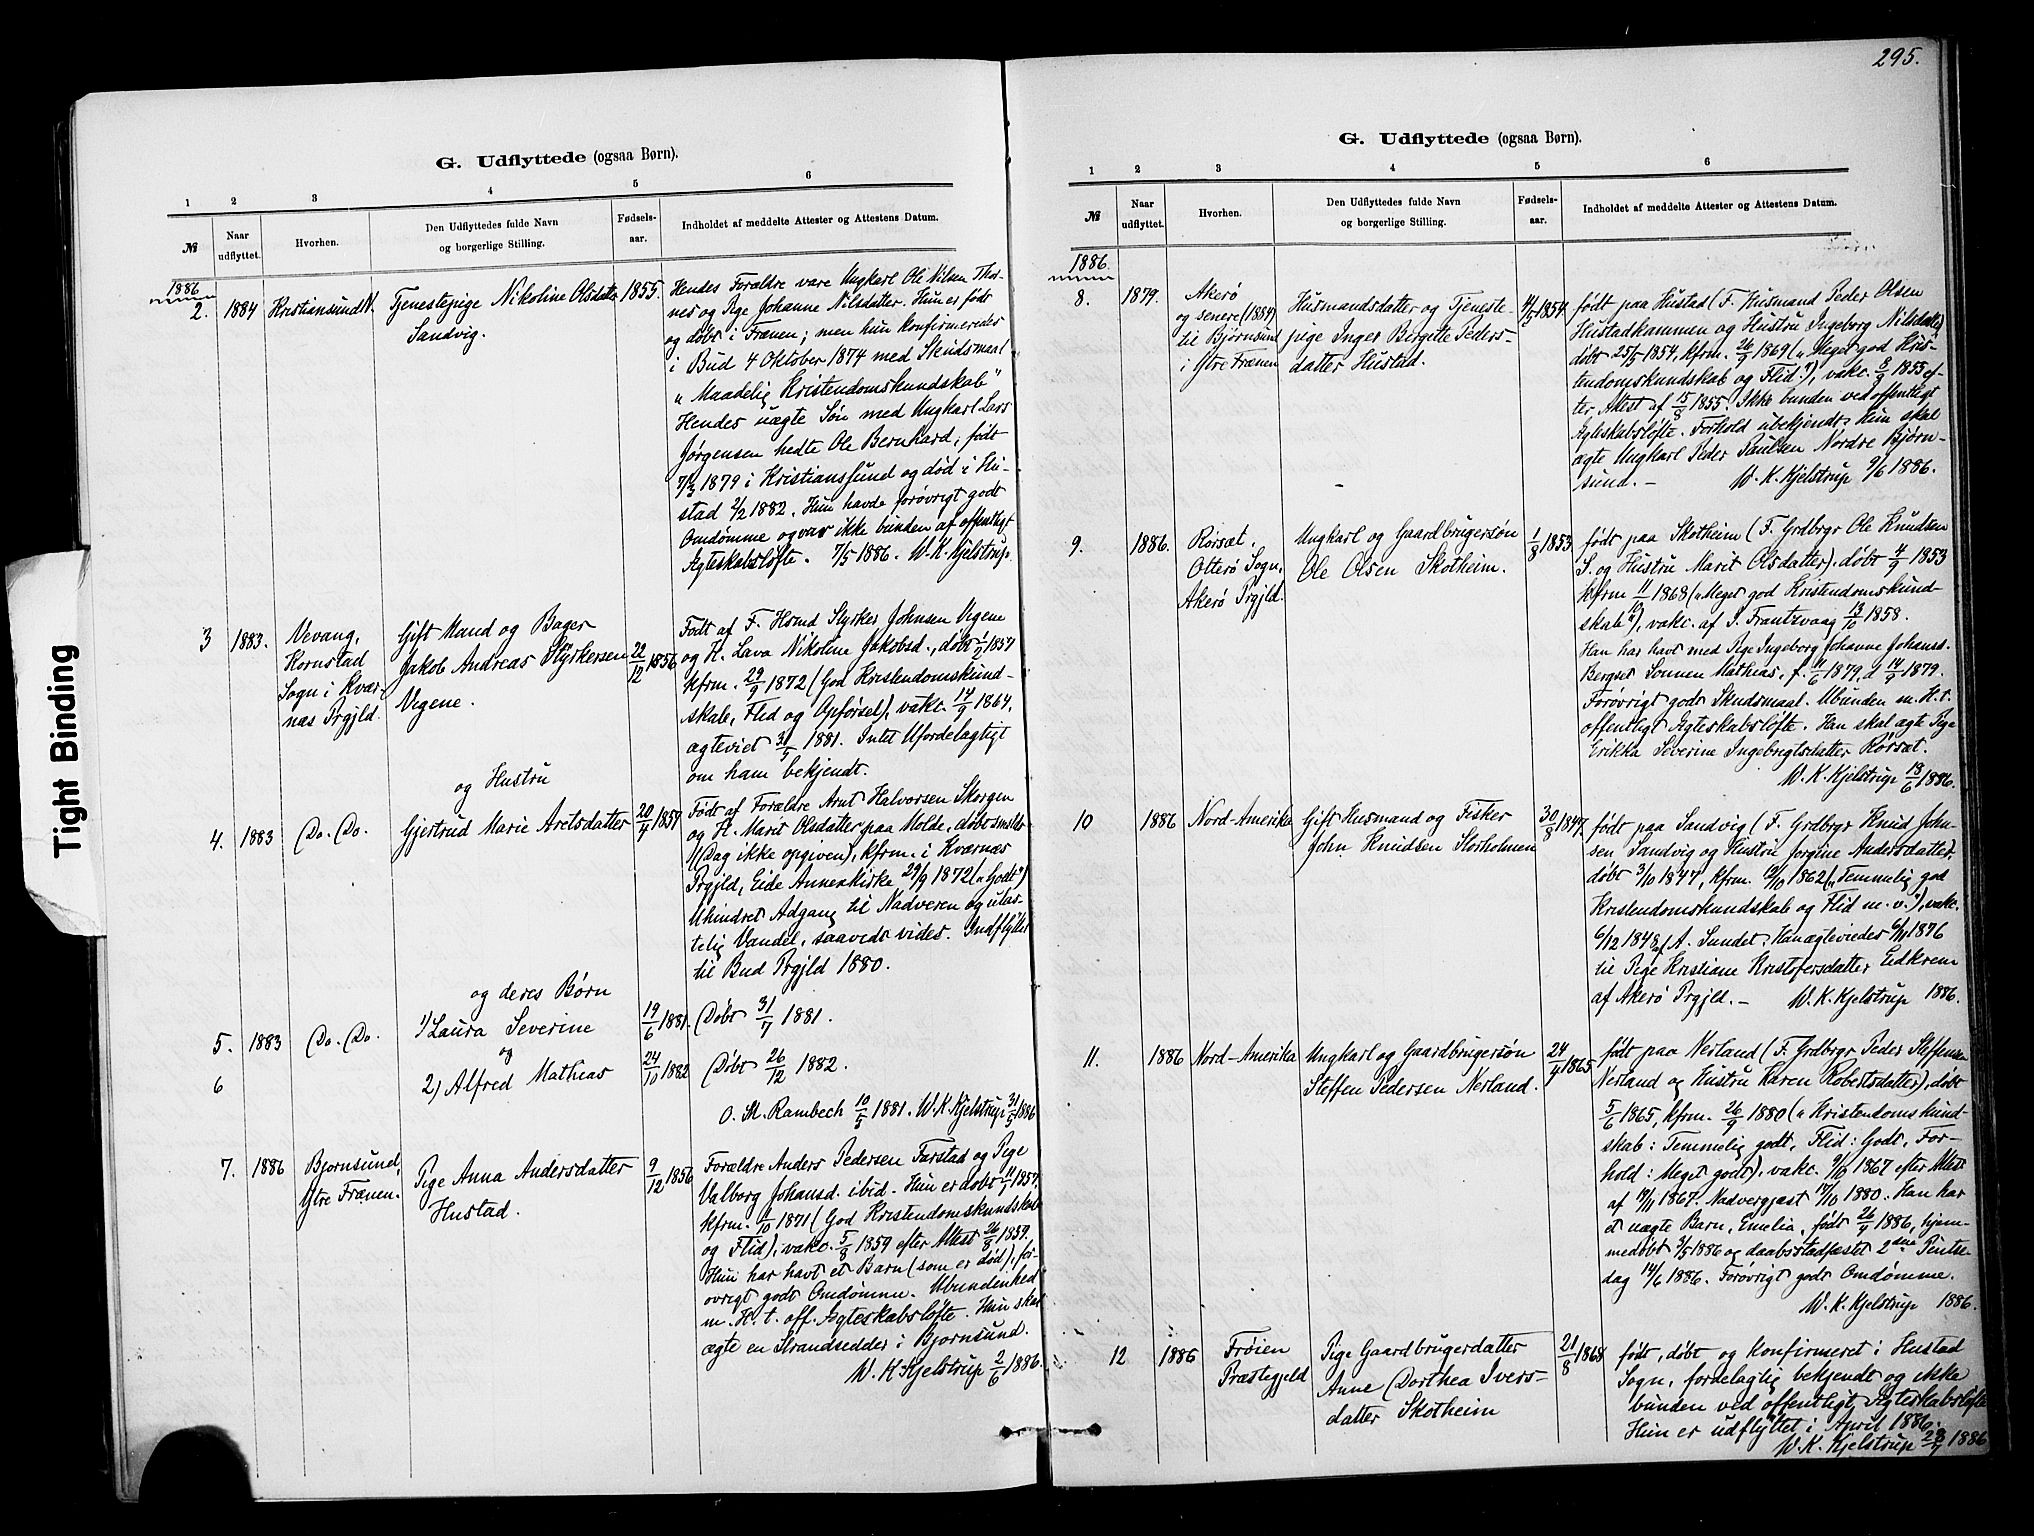 295.
G. Udflyttede (ogsaa Børn).
1 2 3 4 5 6
№ Naar udflyttet. Hvorhen. Den Udflyttedes fulde Navn og borgerlige Stilling. Fødsels-aar. Indholdet af meddelte Attester og Attestens Datum.
1886
2. 1884 Kristiansund N. Tjenestepige Nikoline Olsdatter 1855.
Sandvig.
Hendes Forældre vare Ungkarl Ole Nilsen Thor-
nes og Pige Johanne Nilsdatter. Hun er født
og døbt i Frænen; men hun konfirmeredes
i Bud 4 Oktober 1874 med Skudsmaal
"Maadelig Kristendomskundskab"
Hendes uægte Søn med Ungkarl Lars
Jørgensen hedte Ole Bernhard, født
7/3 1879 i Kristianssund og død i Hu-
stad 2/2 1882. Hun havde forøvrigt godt
Omdømme og var ikke bunden af offentligt
Ægteskabsløfte. 7/5 1886. W. K. Kjelstrup.
3 1883. Vevang, Gift Mand og Bager
Kornstad Jakob Andreas Styrkersen 22/12 1856
Sogn i Kvær- Vegene.
næs Prgjld.
Født af F. Hsmd Styrker Johnsen Vegene
og H. Lava Nikoline Jakobsd., døbt 1/2 1857
kfrm. 29/9 1872 (God Kristendomskund-
skab, Flid og Opførsel), vakc. 14/9 1864,
ægteviet 31/5 1881. Intet Ufordelagtigt
om ham bekjendt.
og Hustru
4. 1883 Do. Do. Gjertrud Marie Arntsdatter 20/4 1857
Født af Forældre Arnt Halvorsen Skorgen
og H. Marit Olsdatter paa Molde, døbt smsteds
(Dag ikke opgiven), kfrm. i Kværnæs
Prgjld, Eide Annexkirke 29/9 1872 ("Godt")
Uhindret Adgang til Nadveren og ulas-
telig Vandel, saavidt vides. Indflyttet
til Bud Prgjld 1880.
og deres Børn
5. 1883 Do. Do. 1) Laura Severine 19/6 1881 Døbt 31/7 1881.
og
6 2) Alfred Mathias 24/10 1882 Døbt 26/12 1882.
O. M. Rambech 10/5 1881. W. K. Kjelstrup 31/5 1886
7. 1886 Bjornsund, Pige Anna Andersdatter 9/12 1856
Ytre Frænen. Hustad.
Forældre Anders Pedersen Farstad og Pige
Valborg Johansd. ibid. Hun er døbt 11/1 1857.
kfrm. 1/10 1871 (God Kristendomskundskab
og Flid), vakc. 5/8 1859 efter Attest 26/8 1859.
Hun har havt et Barn (som er død), for-
øvrigt godt Omdømme. Ubundenhed
m. H. t. off. Ægteskabsløfte. Hun skal
ægte en Strandsedder i Bjornsund.
W. K. Kjelstrup 2/6 1886.
G. Udflyttede (ogsaa Børn).
1 2 3 4 5 6
№ Naar udflyttet. Hvorhen. Den Udflyttedes fulde Navn og borgerlige Stilling. Fødsels-aar. Indholdet af meddelte Attester og Attestens Datum.
1886.
8. 1879. Akerø Husmandsdatter og Tjeneste- 4/5 1854
og senere (1884) pige Inger Bergitte Peders-
til Bjørnsund datter Hustad.
i Ytre Frænen
født paa Hustad (F. Husmand Peder Olsen
Hustadkammen og Hustru Ingeborg Nilsdatter)
døbt 25/5 1854, kfrm. 26/9 1869 ("Meget god Kris-
tendomskundskab og Flid"), vakc. 8/9 1855 ef-
ter Attest af 15/8 1855. Ikke bunden ved offentligt
Ægteskabsløfte. Forhold ubekjendt. Hun skal
ægte Ungkarl Peder Paulsen Nordre Bjørn-
sund. — W. K. Kjelstrup 9/6 1886.
9. 1886. Rørsæt. Ungkarl og Gaardbrugersøn 1/8 1853
Otterø Sogn, Ole Olsen Skotheim.
Akerø Prgjld.
født paa Skotheim (F. Grdbrgr Ole Knudsen
S. og Hustru Marit Olsdatter). døbt 4/9 1853
kfrm 11/10 1868 ("Meget god Kristendomskund-
skab"), vakc. af S. Frantzvaag 13/10 1858.
Han har havt med Pige Ingeborg Johanne Johansd.
Bergset Sønnen Mathias, f. 11/6 1879, d 14/9 1879.
Forøvrigt godt Skudsmaal. Ubunden m. H. t.
offentligt Ægteskabsløfte. Han skal ægte Pige
Erikka Severine Ingebrigtsdatter Rørsæt.
W. K. Kjelstrup 18/6 1886.
10 1886 Nord-Amerika Gift Husmand og Fisker 30/8 1847.
John Knudsen Storholmen
født paa Sandvig (F. Grdbrgr Knud John-
sen Sandvig og Hustru Jorgine Andersdatter).
døbt 3/10 1847, kfrm. 12/10 1862 ("Temmelig god
Kristendomskundskab og Flid m. v."), vakc.
6/12 1848 af A. Sundet. Han ægteviedes 6/11 1876
til Pige Kristiane Kristofersdatter Eidkrem
af Akerø Prgjld. — W. K. Kjelstrup 1886.
11. 1886 Nord-Amerika Ungkarl og Gaardbrugersøn 24/4 1865
Steffen Pedersen Nerland.
født paa Nerland (F. Grdbrgr Peder Steffensen
Nerland og Hustru Karen Robertsdatter), døbt
5/6 1865, kfrm. 26/9 1880 ("Kristendomskund-
skab: Temmelig godt, Flid: Godt, For-
hold: Meget godt), vakc. 9/12 1867 efter Attest
af 17/11 1867. Nadvergjæst 17/10 1880. Han har
et uægte Barn, Emelia, født 26/4 1886, hjem-
medøbt 3/5 1886 og daabsstadfæstet 2den Pintse-
dag 14/6 1886. Forøvrigt godt Omdømme.
W. K. Kjelstrup 1886.
12 1886 Frøien Pige Gaardbrugerdatter 21/8 1868
Præstegjeld Anne Dorthea Ivers-
datter Skotheim
født, døbt og konfirmeret i Hustad
Sogn, fordelagtig bekjendt og ikke
bunden ved offentligt Ægteskabsløfte
Hun er udflyttet i April 1886.
W. K. Kjelstrup 28/7 1886
Tight Binding